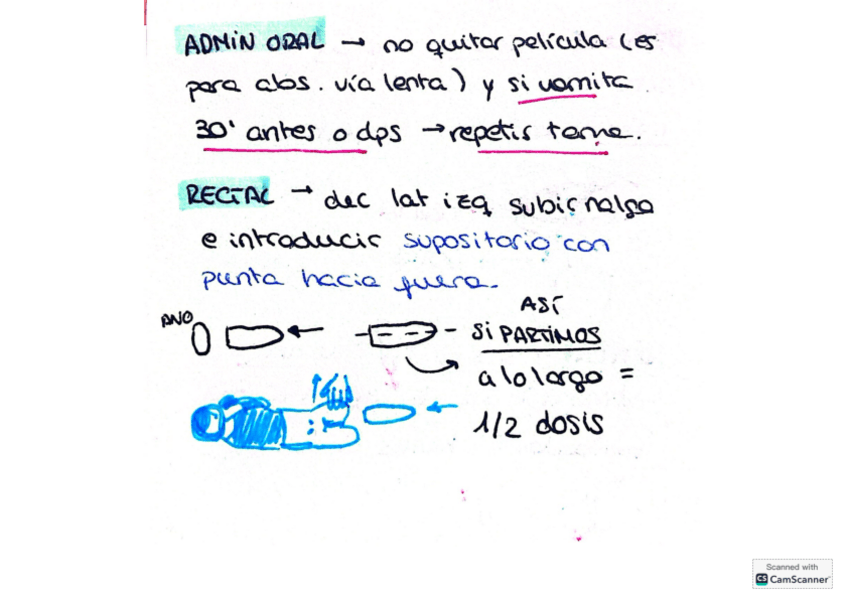 ADMIN ORAL → no quitar película (es
para abs. vía lenta) y si vomita
30' antes o dps → repetir toma.
RECTAL → dec lat izq subir nalga
e introducir supositorio con
punta hacia fuera.
ANO
ASÍ
SI PARTIMOS
a lo largo =
1/2 dosis
Scanned with
CS CamScanner